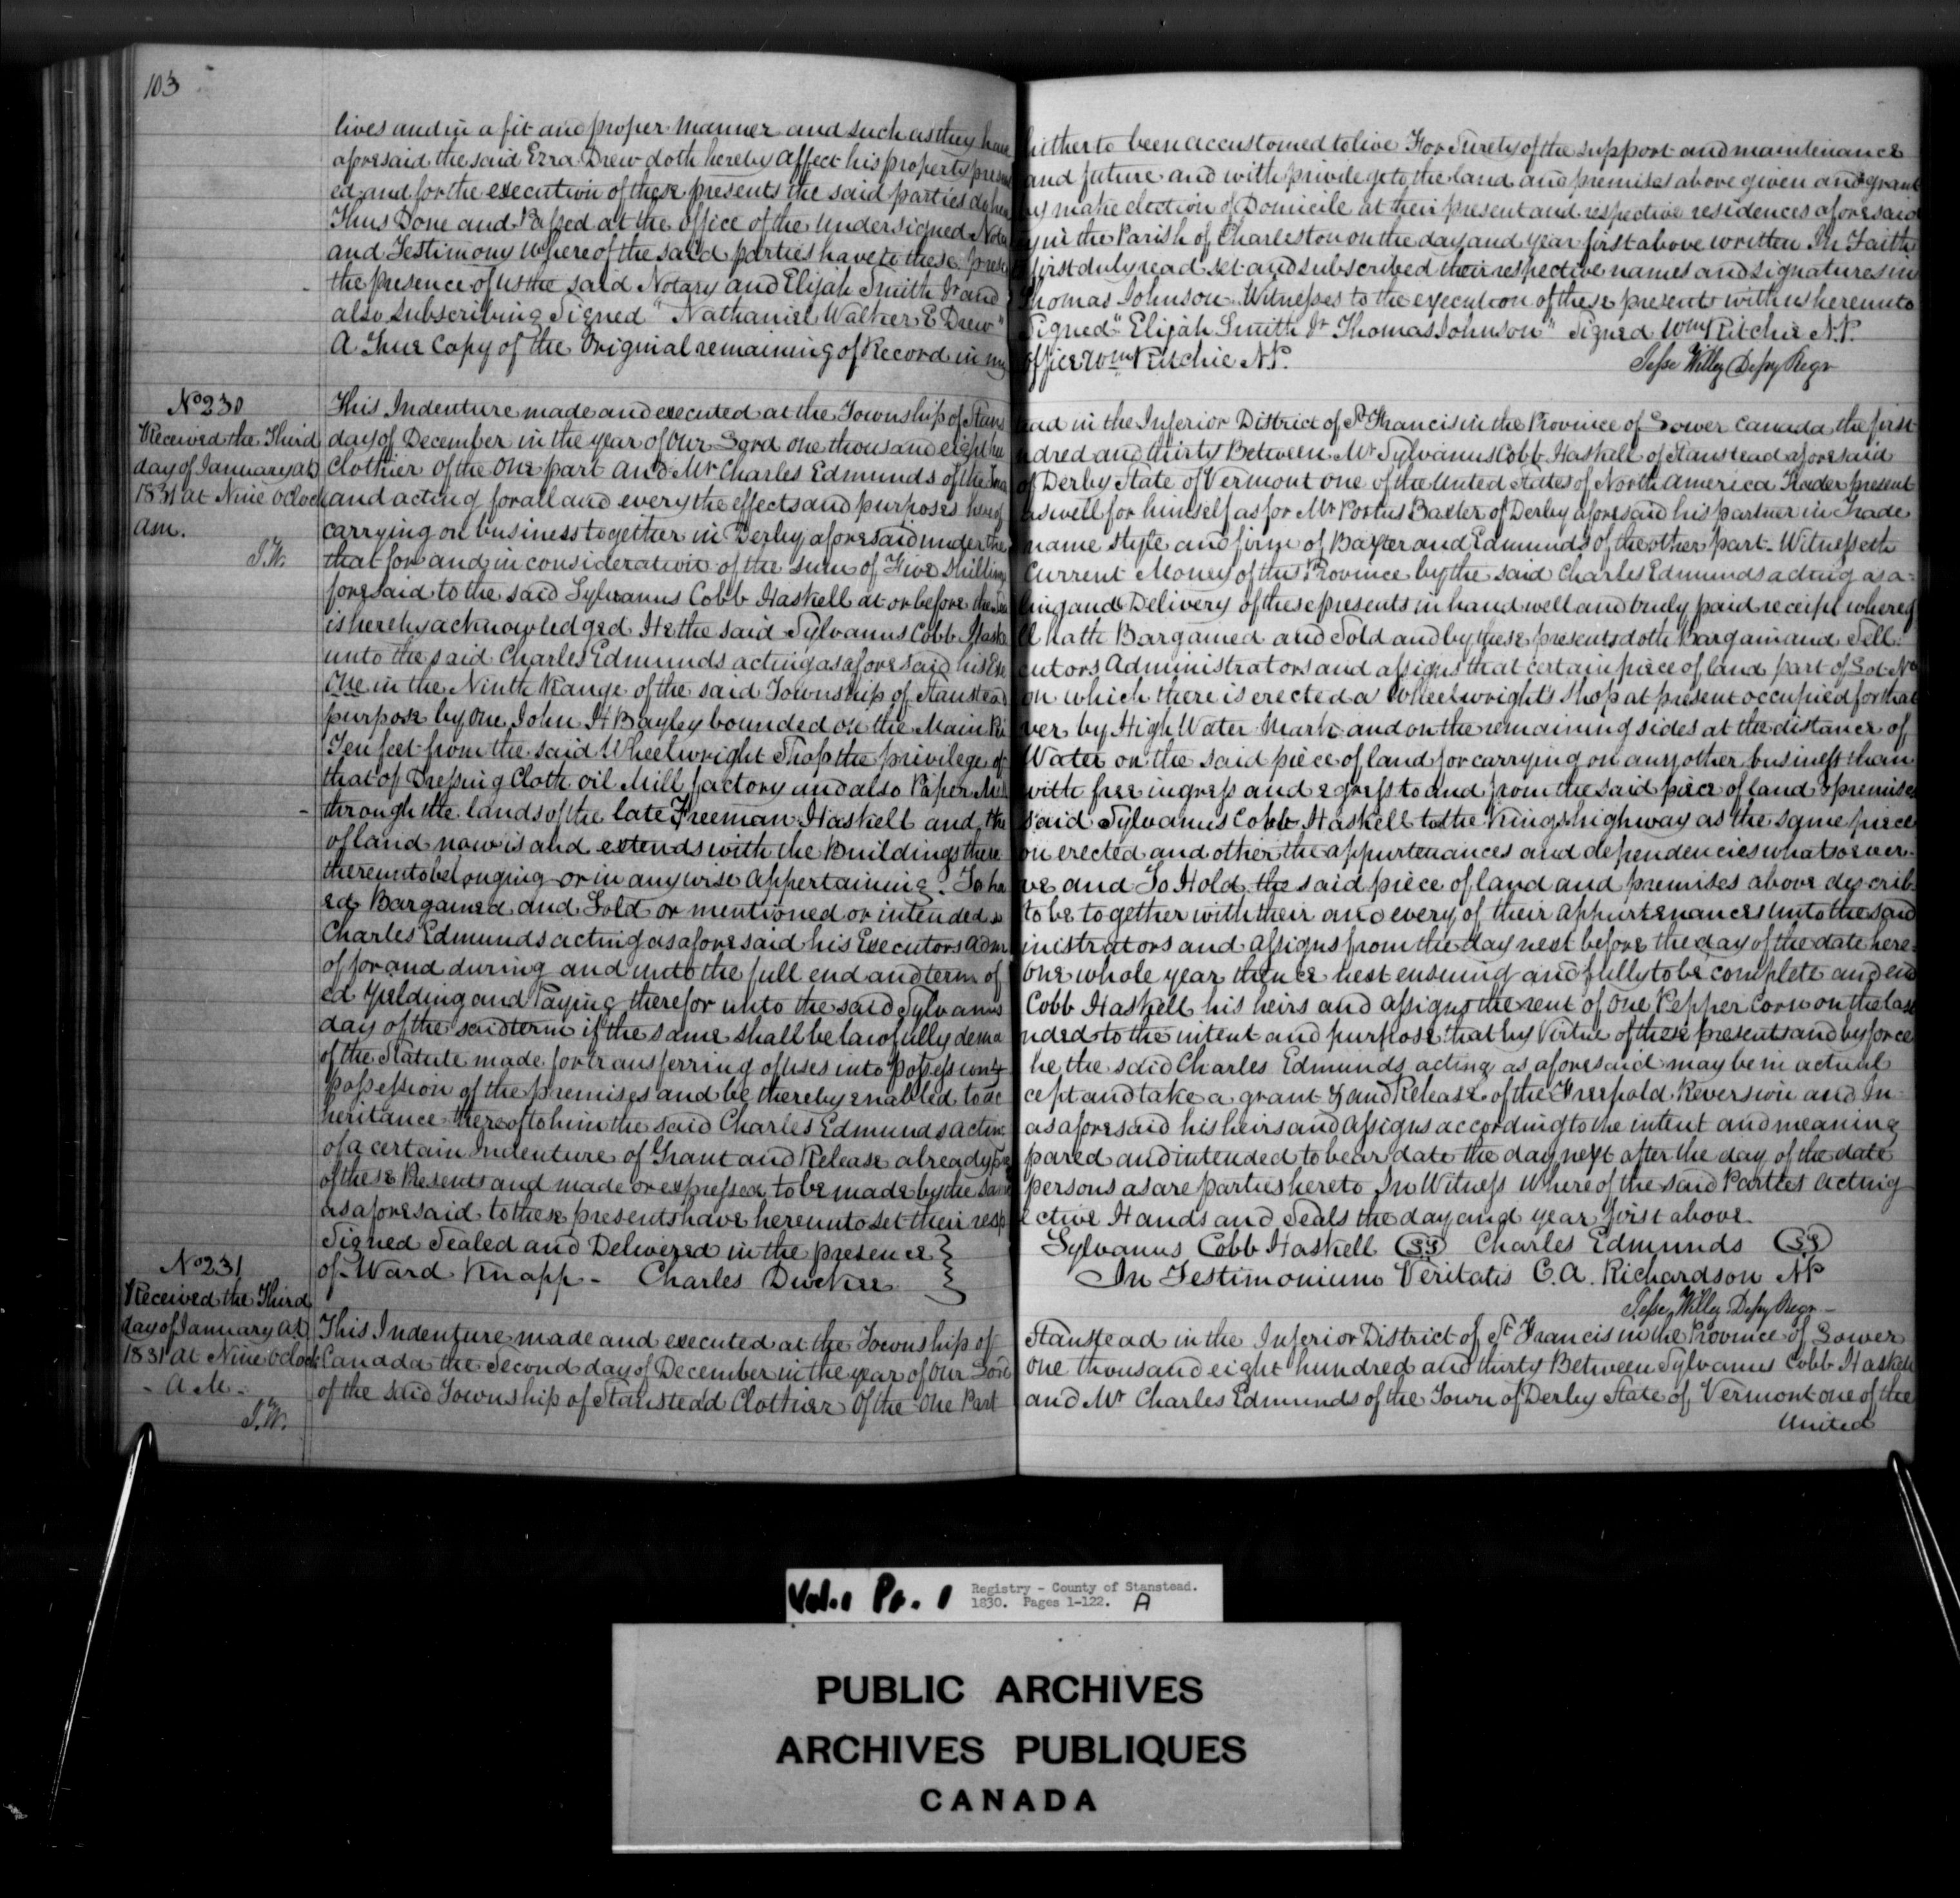 103
lives and in a fit and proper manner and such as they have hitherto been accustomed to live For Surety of the support and maintenance
aforesaid the said Ezra Drew doth hereby affect his property present and future and with privilege to the land and premises above given and grant
ed and for the execution of these presents the said parties do hereby make election of Domicile at their present and respective residences aforesaid
Thus Done and Passed at the office of the undersigned Notary in the Parish of Charleston on the day and year first above written In Faith
and Testimony Whereof the said parties have to these presents first duly read set and subscribed their respective names and signatures in
the presence of us the said Notary and Elijah Smith Jr and Thomas Johnson Witnesses to the execution of these presents with us hereunto
also subscribing Signed "Nathaniel Walker E Drew" Signed "Elijah Smith Jr Thomas Johnson" Signed Wm Ritchie N.P.
A True Copy of the Original remaining of Record in my office Wm Ritchie N.P.
Jesse Willey Depy Regr
No 230
Received the Third
day of January AD
1831 at Nine oclock
am.
J.W.
This Indenture made and executed at the Township of Stanstead in the Inferior District of St Francis in the Province of Lower Canada the first
day of December in the year of Our Lord one thousand eight hundred and thirty Between Mr Sylvanus Cobb Haskell of Stanstead aforesaid
Clothier of the One part and Mr Charles Edmunds of the Town of Derby State of Vermont one of the United States of North America Trader present
and acting for all and every the effects and purposes hereof as well for himself as for Mr Portus Baxter of Derby aforesaid his partner in Trade
carrying on business together in Derby aforesaid under the name style and firm of Baxter and Edmunds of the other part - Witnesseth
that for and in consideration of the sum of Five Shillings Current Money of this Province by the said Charles Edmunds acting as a-
foresaid to the said Sylvanus Cobb Haskell at or before the Sealing and Delivery of these presents in hand well and truly paid receipt whereof
is hereby acknowledged He the said Sylvanus Cobb Haskell hath Bargained and Sold and by these presents doth Bargain and Sell
unto the said Charles Edmunds acting as aforesaid his Executors Administrators and assigns that certain piece of land part of Lot No
One in the Ninth Range of the said Township of Stanstead on which there is erected a Wheelwright's Shop at present occupied for that
purpose by one John H Bayley bounded on the Main River by High Water Mark and on the remaining sides at the distance of
Ten feet from the said Wheelwright Shop the privilege of Water on the said piece of land for carrying on any other business than
that of Dressing Cloth oil Mill factory and also Paper Mill with free ingress and egress to and from the said piece of land & premises
through the lands of the late Freeman Haskell and the said Sylvanus Cobb Haskell to the Kings highway as the same piece
of land now is and extends with the Buildings thereon erected and other the appurtenances and dependencies whatsoever
thereunto belonging or in anywise appertaining. To have and To Hold the said piece of land and premises above describ
ed Bargained and Sold or mentioned or intended so to be together with their and every of their appurtenances unto the said
Charles Edmunds acting as aforesaid his Executors Administrators and assigns from the day next before the day of the date here-
of for and during and unto the full end and term of one whole year thence next ensuing and fully to be complete and end
ed Yielding and Paying therefor unto the said Sylvanus Cobb Haskell his heirs and assigns the rent of One Pepper Corn on the last
day of the said term if the same shall be lawfully demanded to the intent and purpose that by Virtue of these presents and by force
of the Statute made for transferring of uses into possession he the said Charles Edmunds acting as aforesaid may be in actual
possession of the premises and be thereby enabled to accept and take a grant and Release of the Freehold Reversion and In-
heritance thereof to him the said Charles Edmunds acting as aforesaid his heirs and assigns according to the intent and meaning
of a certain Indenture of Grant and Release already prepared and intended to bear date the day next after the day of the date
of these Presents and made or expressed to be made by the same persons as are parties hereto In Witness Whereof the said Parties acting
as aforesaid to these presents have hereunto set their respective Hands and Seals the day and year first above
Signed Sealed and Delivered in the presence Sylvanus Cobb Haskell LS Charles Edmunds LS
of Ward Knapp - Charles In Testimonium Veritatis C.A. Richardson NP
Jesse Willey Depy Regr
No 231
Received the Third
day of January AD
1831 at Nine oclock
A M -
J.W.
This Indenture made and executed at the Township of Stanstead in the Inferior District of St Francis in the Province of Lower
Canada the Second day of December in the year of Our Lord one thousand eight hundred and thirty Between Sylvanus Cobb Haskell
of the said Township of Stanstead Clothier Of the One Part and Mr Charles Edmunds of the Town of Derby State of Vermont one of the
United
Vol. 1 Pt. 1 Registry - County of Stanstead.
1830. Pages 1-122. A
PUBLIC ARCHIVES
ARCHIVES PUBLIQUES
CANADA